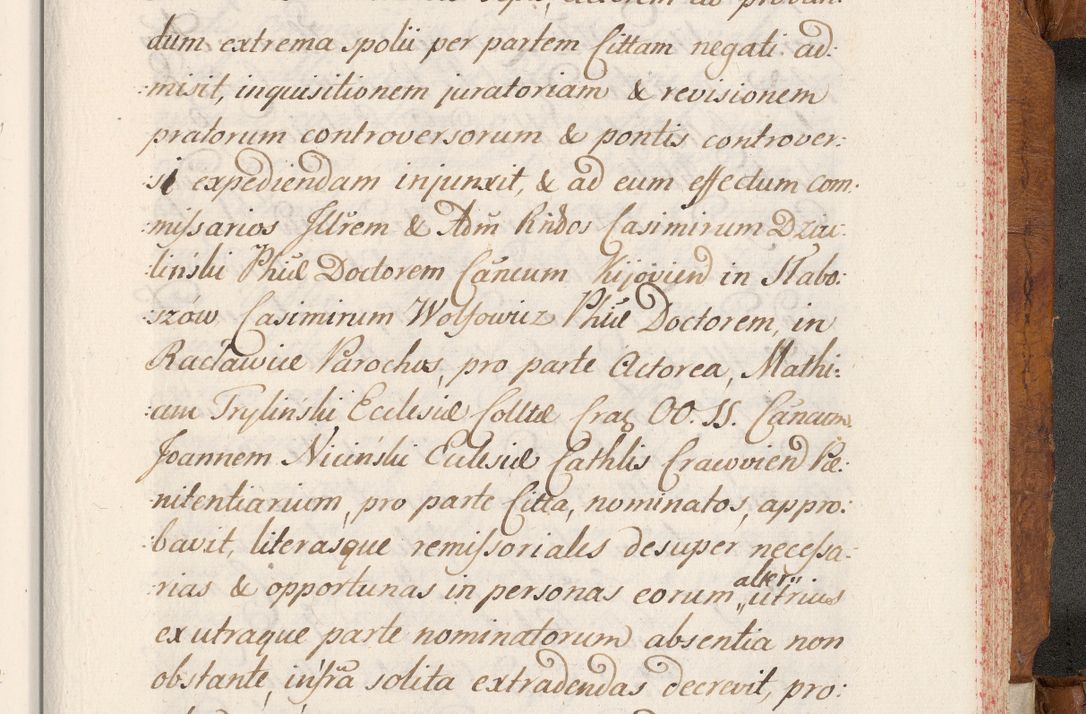 dum extrema spolii per partem Cittam negati ad:
:misit, inquisitionem juratoriam & revisionem
pratorum controversorum & pontis controver:
:si expediendam injunxit, & ad eum effectum com:
:missarios Jllrem & Adm Rndos Casimirum Dziu:
:liński Phiæ Doctorem Cancum Kijoviend in Stabo:
:szów Casimirum Wolfowicz Phiæ Doctorem, in
Racławice Parochos, pro parte Actorea, Mathi:
:am Tryliński Ecclesiæ Colltæ Crac OO. SS. Cancum,
Joannem Niciński Ecclesiæ Cathlis Cracoviend Pæ:
:nitentiarium, pro parte Citta, nominatos, appro:
:bavit, literasque remissoriales desuper necessa:
:rias & opportunas in personas eorum alter„
„utrius
ex utraque parte nominatorum absentia non
obstante, infra solita extradendas decrevit, pro: